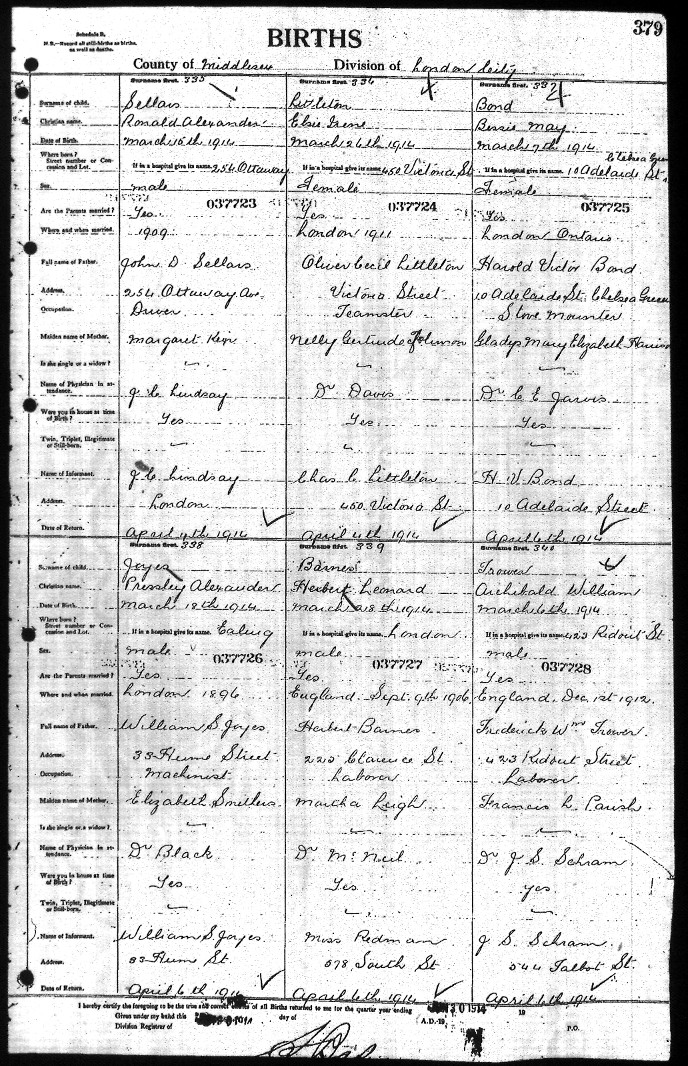 379
Schedule B.
N. B.—Record all still-births as births,
as well as deaths.
BIRTHS
County of Middlesex Division of London City
Surname first. 335 Surname first. 336 Surname first. 337
Surname of child. Sellars Littleton Bond
Christian name. Ronald Alexander Elsie Irene Bessie May
Date of Birth. March 15th 1914 March 26th 1914 March 7th 1914
Where born? Chelsea Green
Street number or Con-
cession and Lot. If in a hospital give its name. 254 Ottaway If in a hospital give its name. 450 Victoria St. If in a hospital give its name. 10 Adelaide St.
Sex. male Female Female
037723 037724 037725
Are the Parents married? Yes. Yes Yes
Where and when married. 1909 London 1911 London Ontario
Full name of Father. John D. Sellars Oliver Cecil Littleton Harold Victor Bond
Address. 254 Ottaway Ave. Victoria Street 10 Adelaide St. Chelsea Green
Occupation. Driver Teamster Stove Mounter
Maiden name of Mother. Margaret Kerr Nelly Gertrude Johnson Gladys Mary Elizabeth
Is she single or a widow?
Name of Physician in at-
tendance. J. C. Lindsay Dr Davis Dr C E Jarvis
Were you in house at time
of Birth? Yes Yes Yes
Twin, Triplet, Illegitimate
or Still-born.
Name of Informant. J. C. Lindsay Chas C Littleton H V Bond
Address. London 450 Victoria St 10 Adelaide Street
Date of Return. April 4th 1914 April 4th 1914 April 6th 1914
Surname first. 338 Surname first. 339 Surname first. 340
Surname of child. Joyes Barnes Trower
Christian name. Pressley Alexander Herbert Leonard Archibald William
Date of Birth. March 18th 1914 March 28th 1914 March 6th 1914
Where born?
Street number or Con-
cession and Lot. If in a hospital give its name. Ealing If in a hospital give its name. London If in a hospital give its name. 423 Ridout St.
Sex. male male male
037726 037727 037728
Are the Parents married? Yes Yes Yes
Where and when married. London 1896 England Sept. 9th 1906 England. Dec. 1st 1912.
Full name of Father. William S Joyes Herbert Barnes Frederick Wm Trower
Address. 33 Hume Street 225 Clarence St. 423 Ridout Street
Occupation. Machinist Laborer Laborer
Maiden name of Mother. Elizabeth Smellers Martha Leigh Francis L Parish
Is she single or a widow?
Name of Physician in at-
tendance. Dr Black Dr McNeil Dr J. S. Schram
Were you in house at time
of Birth? Yes Yes yes
Twin, Triplet, Illegitimate
or Still-born.
Name of Informant. William S Joyes Miss Redman J S. Schram
Address. 33 Hum St. 578 South St 544 Talbot St.
Date of Return. April 6th 1914 April 6th 1914 April 6th 1914
I hereby certify the foregoing to be the true and correct of all Births returned to me for the quarter year ending 30 1914 19
Given under my hand this day of A.D.-19
Division Registrar of P.O.